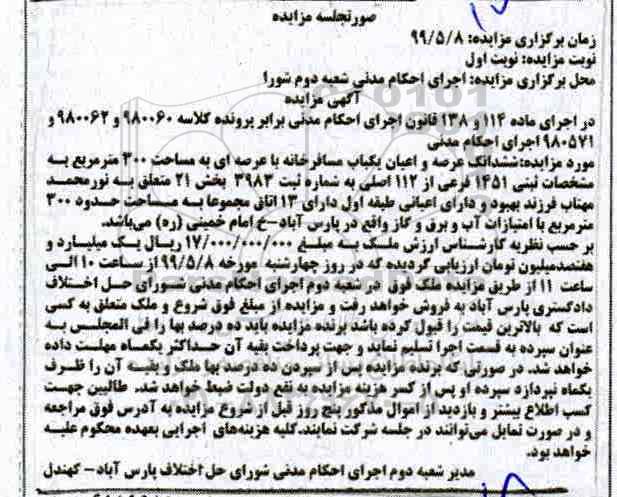 صورتجلسه مزایده
زمان برگزاری مزایده: ۹۹/۵/۸
نوبت مزایده: نوبت اول
محل برگزاری مزایده: اجرای احکام مدنی شعبه دوم شورا
آگهی مزایده
در اجرای ماده ۱۱۴ و ۱۳۸ قانون اجرای احکام مدنی برابر پرونده کلاسه ۹۸۰۰۶۰ و ۹۸۰۰۶۲ و
۹۸۰۵۷۱ اجرای احکام مدنی
مورد مزایده:ششدانگ عرصه و اعیان یکباب مسافرخانه با عرصه ای به مساحت ۳۰۰ مترمربع به
مشخصات ثبتی ۱۴۵۱ فرعی از ۱۱۲ اصلی به شماره ثبت ۳۹۸۳ بخش ۲۱ متعلق به نورمحمد
مهتاب فرزند بهبود و دارای اعیانی طبقه اول دارای ۱۳ اتاق مجموعا به مساحت حدود ۳۰۰
مترمربع با امتیازات آب و برق و گاز واقع در پارس آباد-خ امام خمینی (ره) می‌باشد.
بر حسب نظریه کارشناس ارزش ملک به مبلغ ۱۷/۰۰۰/۰۰۰/۰۰۰ ریال یک میلیارد و
هفتصدمیلیون تومان ارزیابی گردیده که در روز چهارشنبه مورخه ۹۹/۵/۸ از ساعت ۱۰ الی
ساعت ۱۱ از طریق مزایده ملک فوق در شعبه دوم اجرای احکام مدنی شورای حل اختلاف
دادگستری پارس آباد به فروش خواهد رفت و مزایده از مبلغ فوق شروع و ملک متعلق به کسی
است که بالاترین قیمت را قبول کرده باشد برنده مزایده باید ده درصد بها را فی المجلس به
عنوان سپرده به قسمت اجرا تسلیم نماید و جهت پرداخت بقیه آن حداکثر یکماه مهلت داده
خواهد شد. در صورتی که برنده مزایده پس از سپردن ده درصد بها ملک و بقیه آن را ظرف
یکماه نپردازد سپرده او پس از کسر هزینه مزایده به نفع دولت ضبط خواهد شد. طالبین جهت
کسب اطلاع بیشتر و بازدید از اموال مذکور پنج روز قبل از شروع مزایده به آدرس فوق مراجعه
و در صورت تمایل می‌توانند در جلسه شرکت نمایند.کلیه هزینه‌های اجرایی بعهده محکوم علیه
خواهد بود.
مدیر شعبه دوم اجرای احکام مدنی شورای حل اختلاف پارس آباد- کهندل